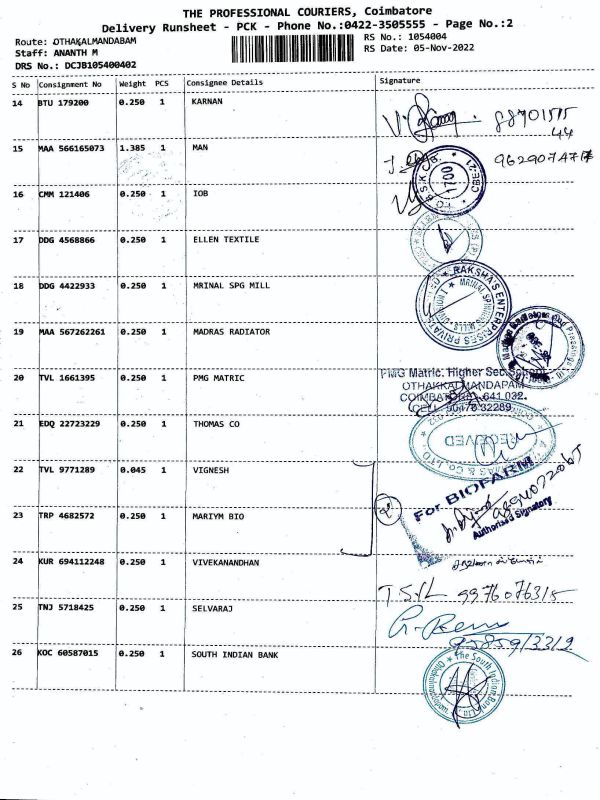 THE PROFESSIONAL COURIERS, Coimbatore
Delivery Runsheet - PCK - Phone No.:0422-3505555 - Page No.:2
Route: OTHAKALMANDABAM
Staff: ANANTH M
DRS No.: DCJB105400402
RS No.: 1054004
RS Date: 05-Nov-2022
S No Consignment No Weight PCS Consignee Details Signature
14 BTU 179200 0.250 1 KARNAN
15 MAA 566165073 1.385 1 MAN
16 CMM 121406 0.250 1 IOB
17 DDG 4568866 0.250 1 ELLEN TEXTILE
18 DDG 4422933 0.250 1 MRINAL SPG MILL
RAKSHA'S ENTERPRISES PRIVATE
MRINAL SPINNING MILLS
19 MAA 567262261 0.250 1 MADRAS RADIATOR
20 TVL 1661395 0.250 1 PMG MATRIC
PMG Matric. Higher Sec.School
OTHAKKALMANDAPAM
COIMBATORE 641 032.
CELL: 90476 32289
21 EDQ 22723229 0.250 1 THOMAS CO
RECEIVED
22 TVL 9771289 0.045 1 VIGNESH
For BIOFARM
Authorised Signatory
23 TRP 4682572 0.250 1 MARIYM BIO
24 KUR 694112248 0.250 1 VIVEKANANDHAN
T.S.V.L 9976076315
25 TNJ 5718425 0.250 1 SELVARAJ
26 KOC 60587015 0.250 1 SOUTH INDIAN BANK
The South Indian Bank Ltd